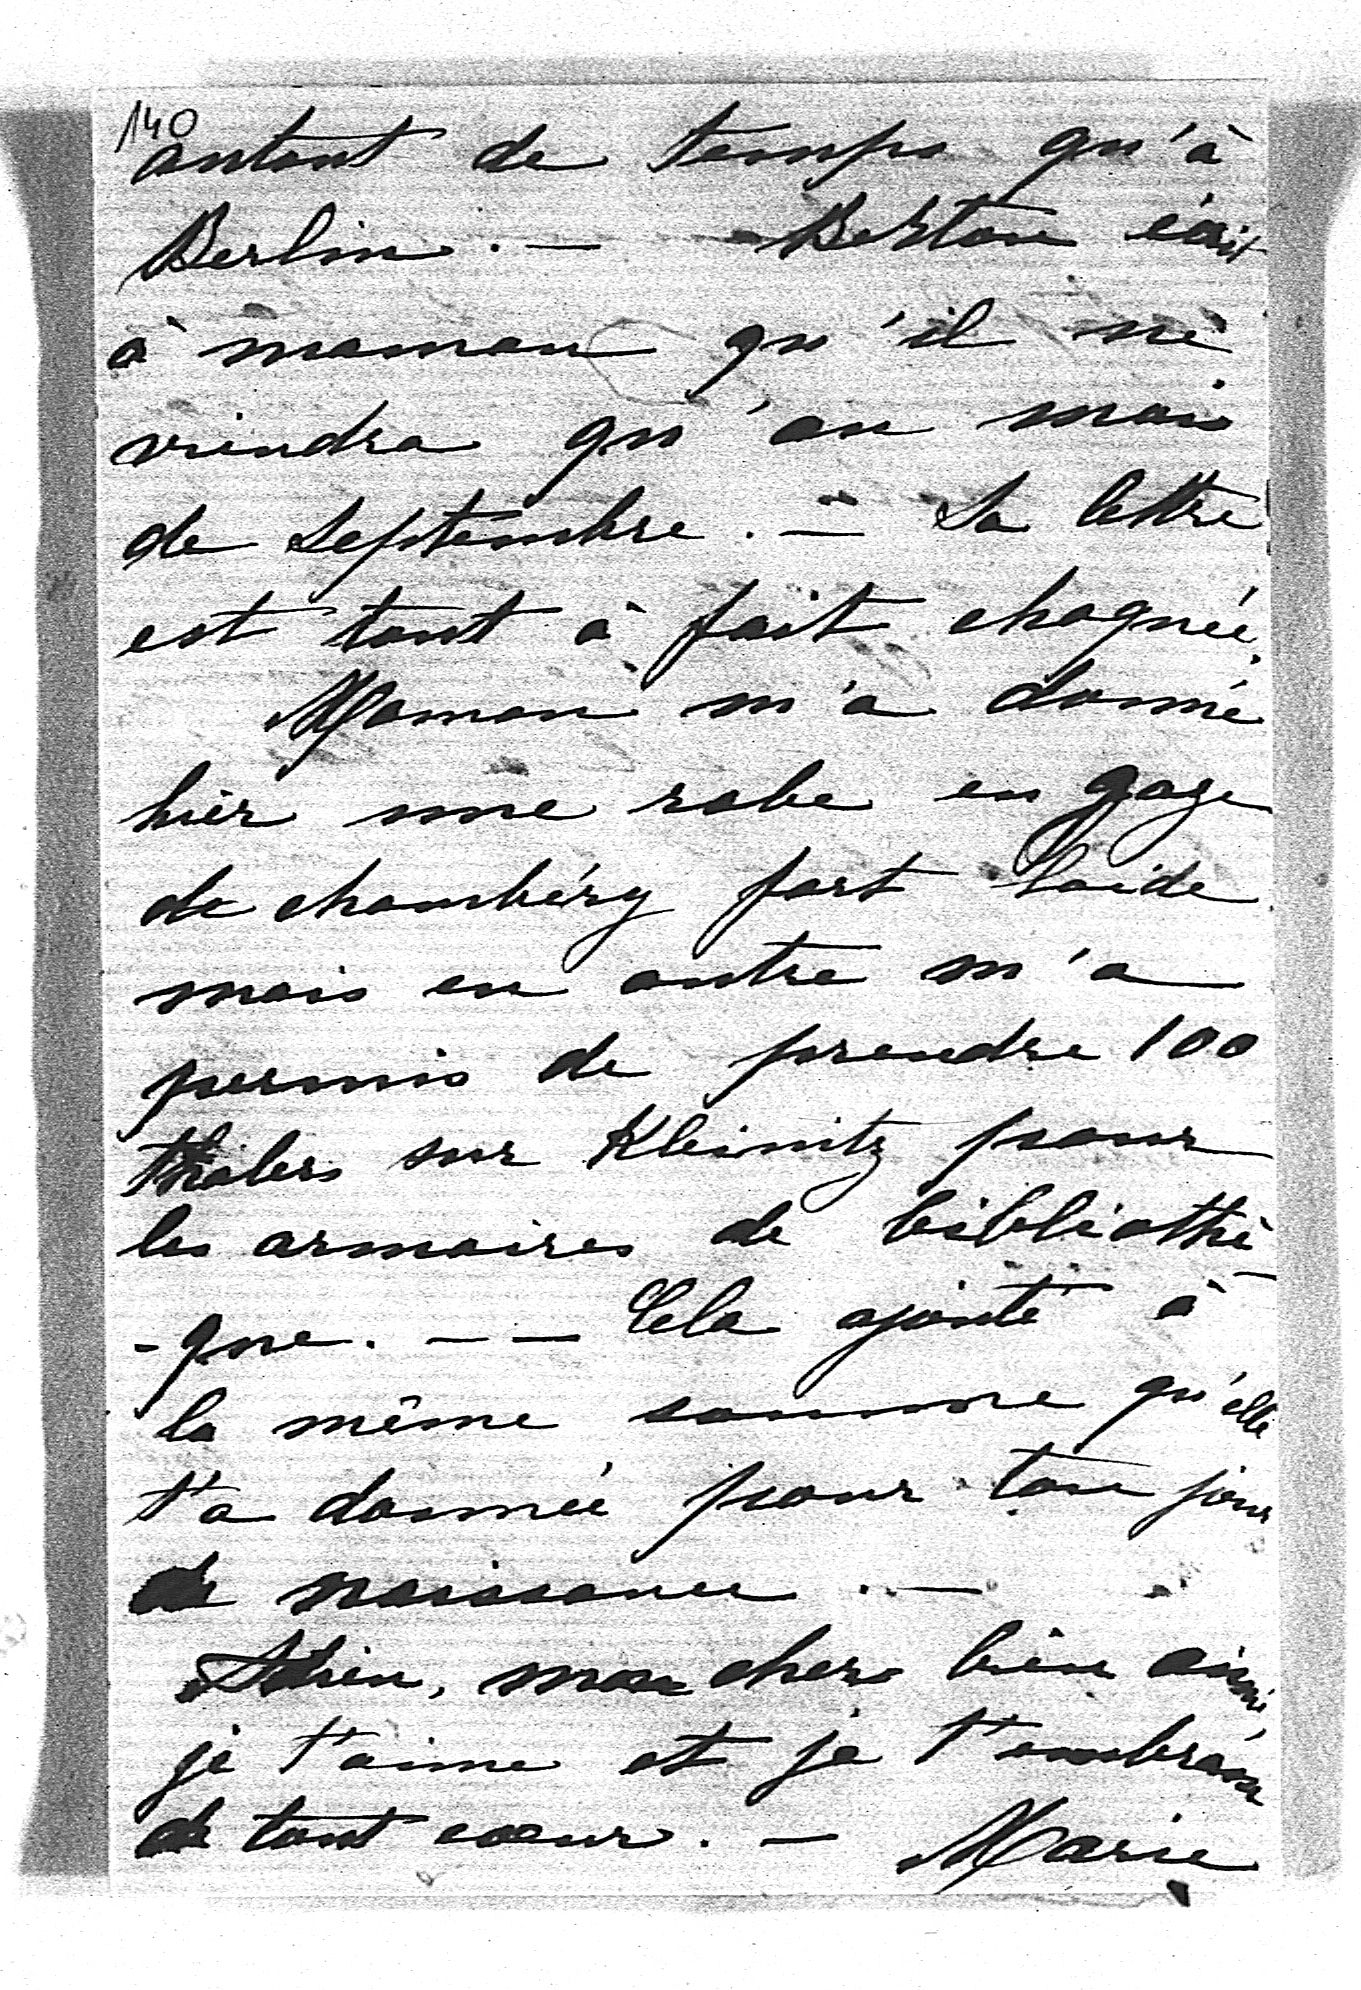 140
autant de temps qu'à
Berlin. — Boston écrit
à maman qu'il ne
viendra qu'au mois
de Septembre. — Sa lettre
est tout à fait
Maman m'a donné
hier une robe en gaze
de chambéry fort laide
mais en outre m'a
permis de prendre 100
thalers sur Kleinitz pour
les armoires de bibliothè-
-que. — — Cela ajouté à
la même somme qu'elle
t'a donnée pour ton jour
de naissance. —
Adieu, mon cher bien aimé
je t'aime et je t'embrasse
de tout coeur. — Marie